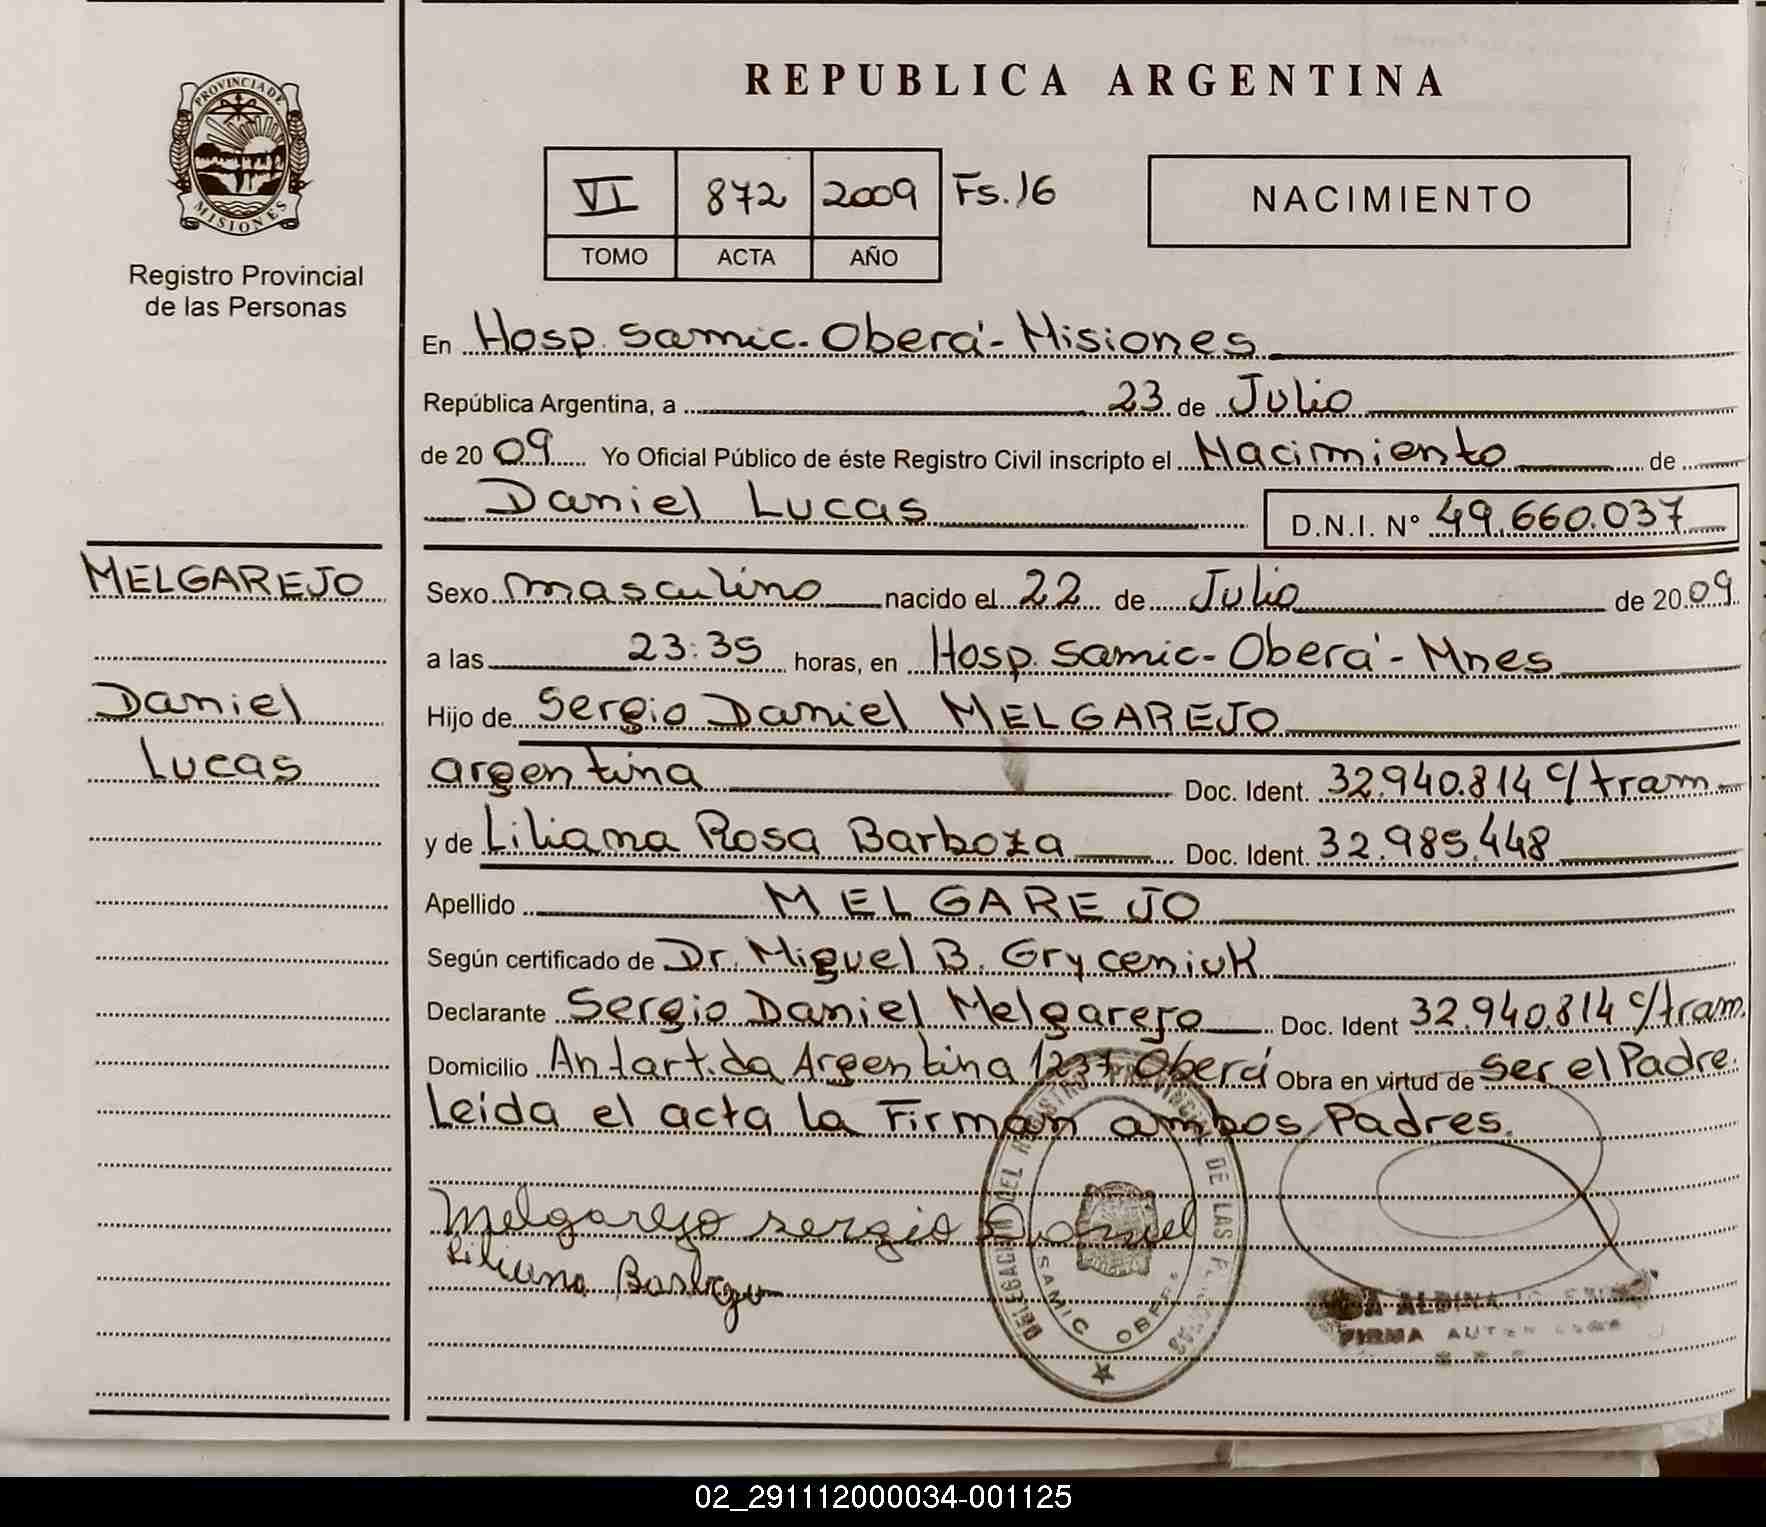 PROVINCIA DE
MISIONES
Registro Provincial
de las Personas
REPUBLICA ARGENTINA
VI 872 2009 Fs. 16
TOMO ACTA AÑO
NACIMIENTO
En Hosp. Samic - Oberá - Misiones
República Argentina, a 23 de Julio
de 2009 Yo Oficial Público de éste Registro Civil inscripto el Nacimiento de
Daniel Lucas D.N.I. Nº 49.660.037
MELGAREJO
Daniel
Lucas
Sexo masculino nacido el 22 de Julio de 2009
a las 23:35 horas, en Hosp. Samic - Oberá - Mnes
Hijo de Sergio Daniel MELGAREJO
argentina Doc. Ident. 32.940.814 c/ tram.
y de Liliana Rosa Barboza Doc. Ident. 32.985.448
Apellido MELGAREJO
Según certificado de Dr. Miguel B. Gryceniuk
Declarante Sergio Daniel Melgarejo Doc. Ident 32.940.814 c/ tram.
Domicilio Antartida Argentina 1237 Oberá Obra en virtud de Ser el Padre.
Leida el acta la Firman ambos Padres.
Melgarejo sergio Daniel
Liliana
DELEGACION DEL REGISTRO PROVINCIAL DE LAS PERSONAS
SAMIC OBERA
ALBINA
FIRMA
02_291112000034-001125